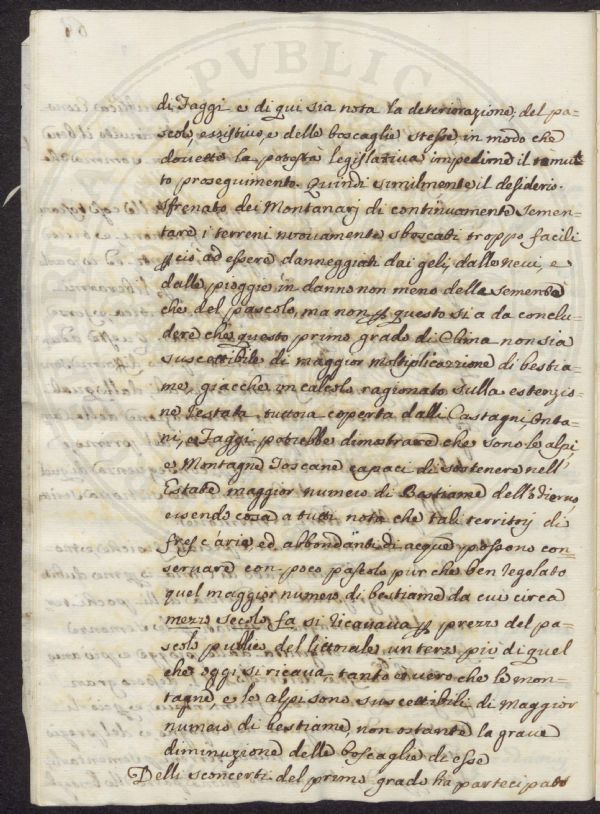 di Faggi e di qui sia nota la deteriorazione, del pa=
scolo, esistivo, e delle boscaglie stesse, in modo che
dovette la potestà legislativa impedirnd il
to proseguimento. Quindi similmente il desiderio
sfrenato dei Montanarj di continuamente Semen=
tare i terreni nuovamente sboscati troppo facili
p ciò ad essere danneggiati dai geli, dalle nevi, e
dalle pioggie in danno non meno della sementa
che del pascolo, ma non p questo si a da conclu=
dere che questo primo grado di Clima non sia
suscettibile di maggior moltiplicazione di bestia=
me, giacche un calcolo ragionato sulla estenzio=
ne restata tuttora coperta dalli Castagni, Onta=
ni, e Faggi potrebbe dimostrare che sono le alpi
e Montagne Toscane capaci di sostenere nell'
Estate maggior numero di Bestiame dell'Odierno,
essendo cosa a tutti nota che tali territorj di
fresc'aria, ed abbondanti di acque possono con=
servare con poco pascolo pur che ben regolato
quel maggior numero di bestiame da cui circa
mezzo secolo fa si ricavava p prezzo del pa=
scolo pubblico del littorale un terzo più di quel
che oggi si ricava, tanto è vero che le mon=
tagne, e le alpi sono suscettibili di maggior
numero di bestiame, non ostante la grave
diminuzione delle boscaglie di esse
Delli sconcerti del primo grado ha partecipato